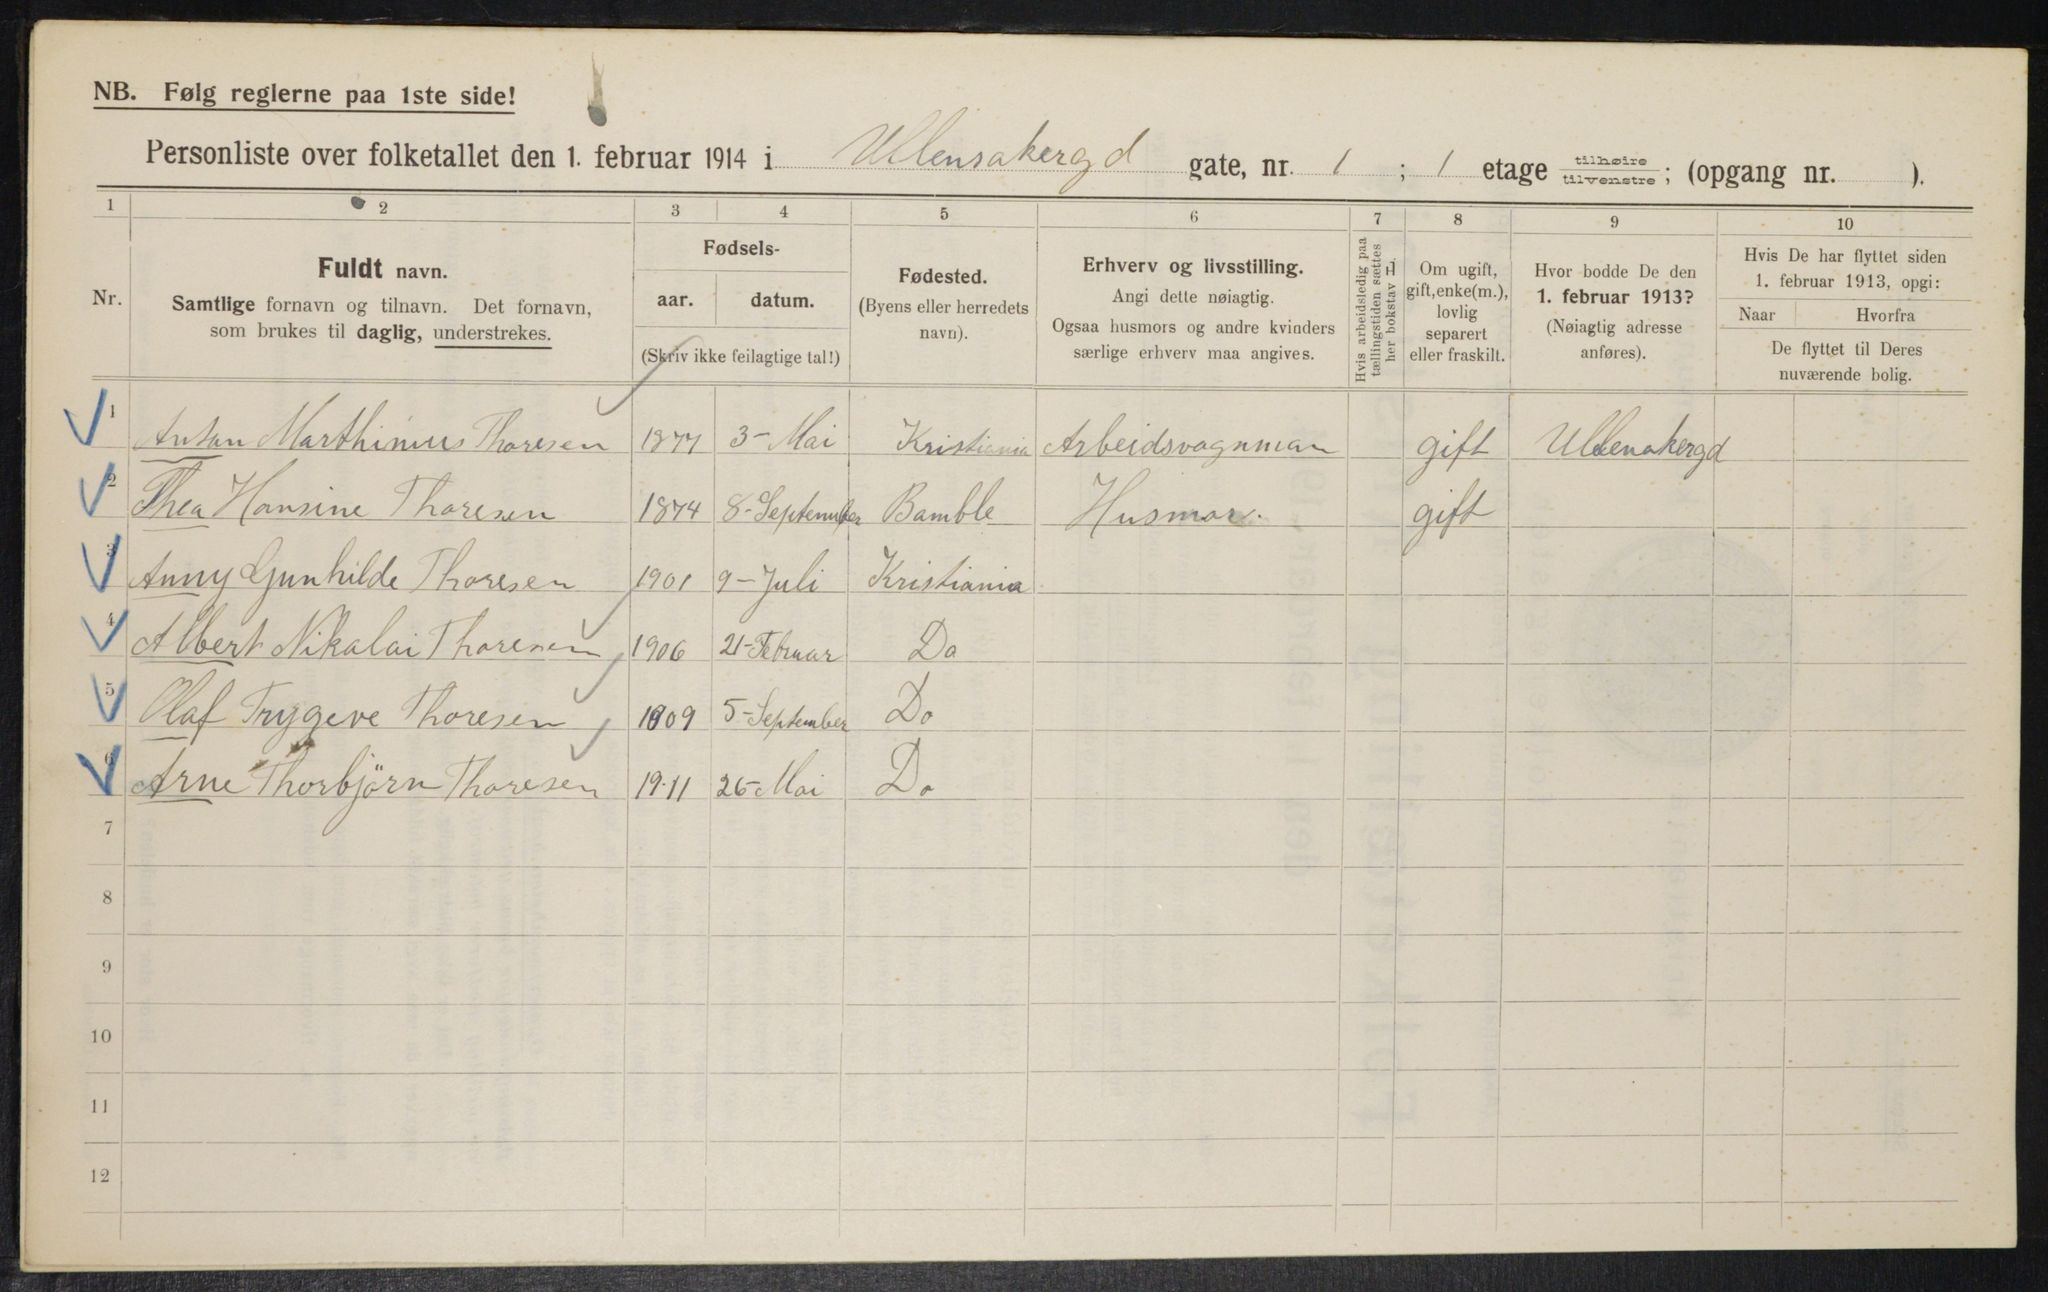 NB. Følg reglerne paa 1ste side!
Personliste over folketallet den 1. februar 1914 i Ullensakergd gate, nr. 1 ; 1 etage tilhøire tilvenstre; (opgang nr. ).
1 2 3 4 5 6 7 8 9 10
Nr.
Fuldt navn.
Samtlige fornavn og tilnavn. Det fornavn,
som brukes til daglig, understrekes.
Fødsels-
aar. datum.
(Skriv ikke feilagtige tal!)
Fødested.
(Byens eller herredets
navn).
Erhverv og livsstilling.
Angi dette nøiagtig.
Ogsaa husmors og andre kvinders
særlige erhverv maa angives.
Hvis arbeidsledig paa
tællingstiden sættes
her bokstav L.
Om ugift,
gift, enke(m.),
lovlig
separert
eller fraskilt.
Hvor bodde De den
1. februar 1913?
(Nøiagtig adresse
anføres).
Hvis De har flyttet siden
1. februar 1913, opgi:
Naar Hvorfra
De flyttet til Deres
nuværende bolig.
1 Anton Marthinius Thoresen 1877 3-Mai Kristiania Arbeidsvognman gift Ullenakergd
2 Thea Hansine Thoresen 1874 8-September Bamble Husmor. gift
3 Anny Gunhilde Thoresen 1901 9-Juli Kristiania
4 Albert Nikolai Thoresen 1906 21-Februar Do
5 Olaf Trygeve Thoresen 1909 5-September Do
6 Arne Thorbjörn Thoresen 19.11 26-Mai Do
7
8
9
10
11
12